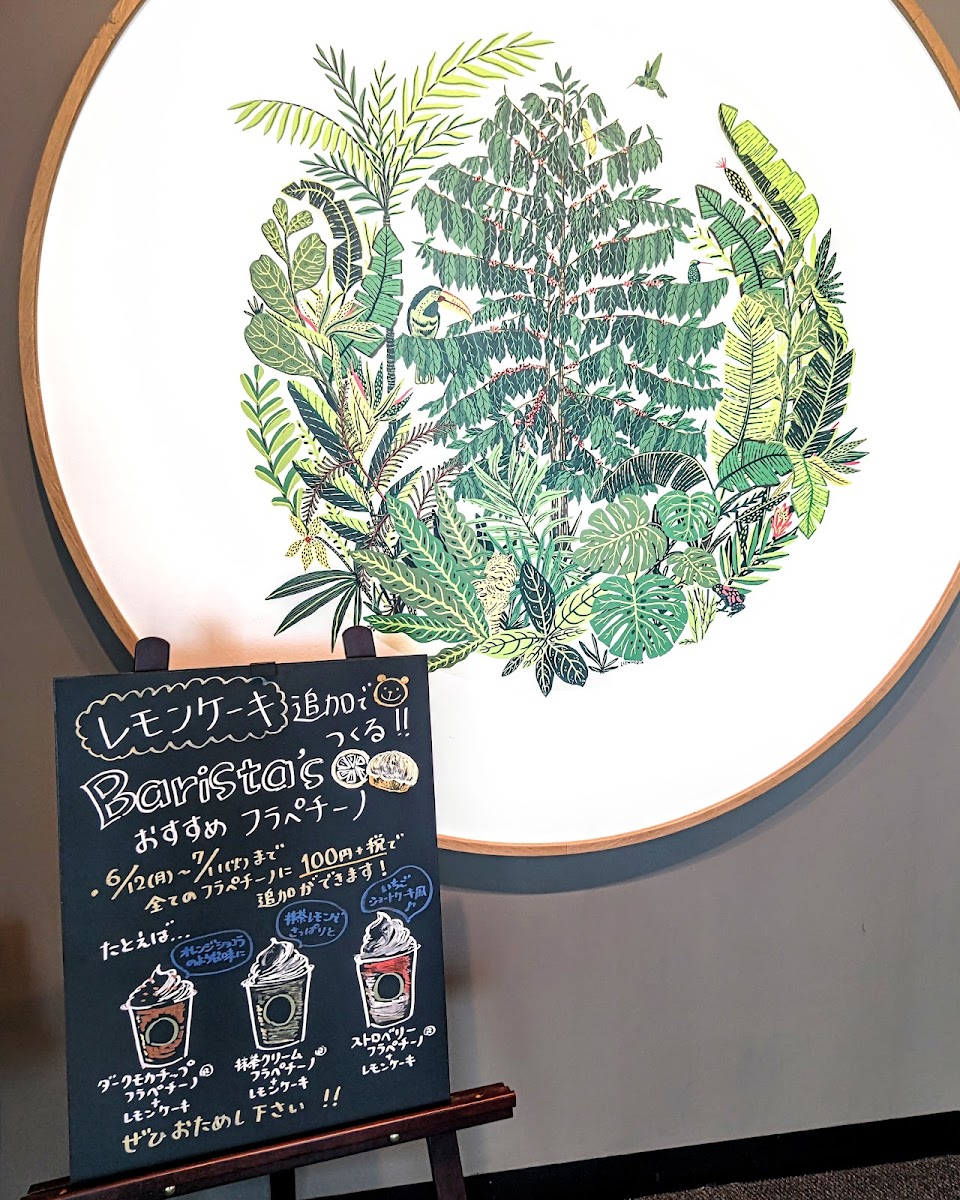 レモンケーキ 追加で
つくる!!
Barista's
おすすめ フラペチーノ
・6/12(月)〜7/11(火)まで
全てのフラペチーノに 100円+税で
追加ができます!
たとえば...
オレンジショコラ
のような味に
抹茶レモンで
さっぱりと
いちご
ショートケーキ風♪
ダークモカチップ
フラペチーノ
+
レモンケーキ
抹茶クリーム
フラペチーノ
+
レモンケーキ
ストロベリー
フラペチーノ
+
レモンケーキ
ぜひ おためし下さい !!